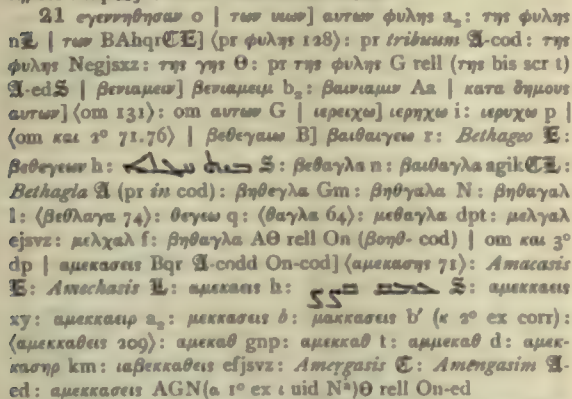 21 εγεννηθησαν ο | των υιων] αυτων φυλης a₂: της φυλης
n𝕷 | των BAhqrℭ𝕰] ⟨pr φυλης 128⟩: pr tribuum 𝕬-cod: της
φυλης Negjsxz: της γης Θ: pr της φυλης G rell (της bis scr t)
𝕬-ed𝕾 | βενιαμειν] βενιαμειμ b₂: βαινιαμιν Aa | κατα δημους
αυτων] ⟨om 131⟩: om αυτων G | ιερειχω] ιερηχω i: ιερυχω p |
⟨om και 2° 71.76⟩ | βεθεγαιω B] βαιθαιγεω r: Bethageo 𝕰:
βεθεγεων h: 𝕾: βεθαγλα n: βαιθαγλα agikℭ𝕷:
Bethagla 𝕬 (pr in cod): βηθεγλα Gm: βηθγαλα N: βηθαγαλ
l: ⟨βεθλαγα 74⟩: θεγεω q: ⟨θαγλα 64⟩: μεθαγλα dpt: μελγαλ
ejsvz: μελχαλ f: βηθαγλα AΘ rell On (βονθ- cod) | om και 3°
dp | αμεκασεις Bqr 𝕬-codd On-cod] ⟨αμεκασης 71⟩: Amacasis
𝕰: Amechasis 𝕷: αμεκαεις h: 𝕾: αμεκκαεις
xy: αμεκκαειρ a₂: μεκκασεις b: μακκασεις b′ (κ 2° ex corr):
⟨αμεκκαθεις 209⟩: αμεκαθ gnp: αμεκκαθ t: αμμεκαθ d: αμεκ-
κασηρ km: ιαβεκκαθεις efjsvz: Amergasis ℭ: Amengasim 𝕬-
ed: αμεκκασεις AGN(α 1° ex ι uid Nᵃ)Θ rell On-ed